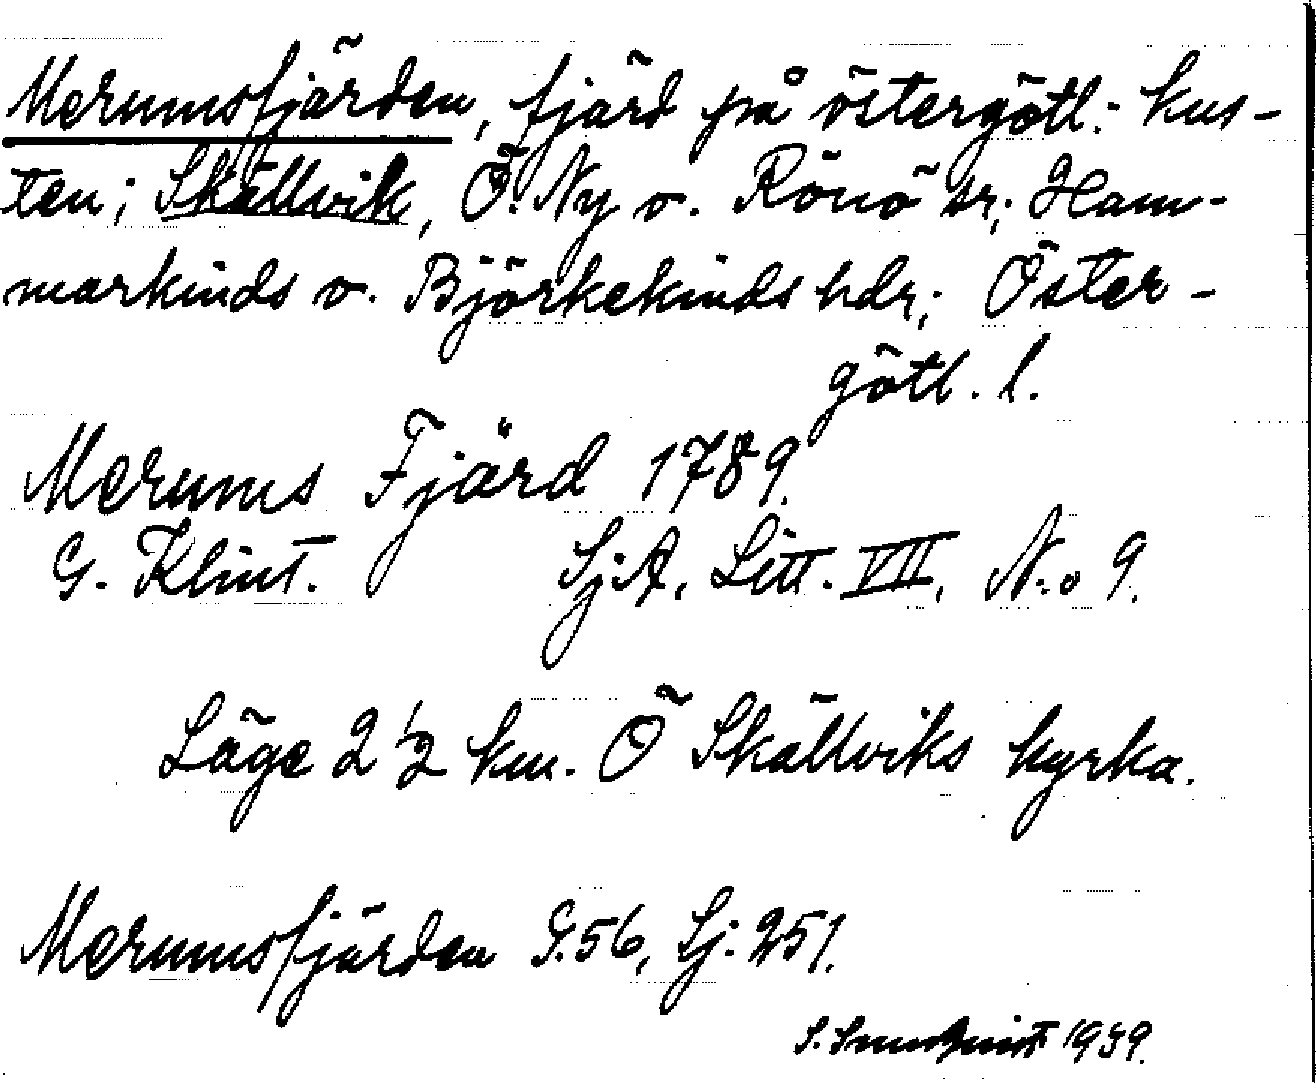 Merumsfjärden, fjärd på östergötl. kus-
ten; Skällvik, Ö. Ny o. Rönö sr; Ham-
markinds o. Björkekinds hdr; Öster-
götl. l.
Merums Fjärd 1789.
G. Klint. Sj.A. Litt. VII, N:o 9.
Läge 2 1/2 km. Ö Skällviks kyrka.
Merumsfjärden G.56, Sj. 251.
S. 1939.